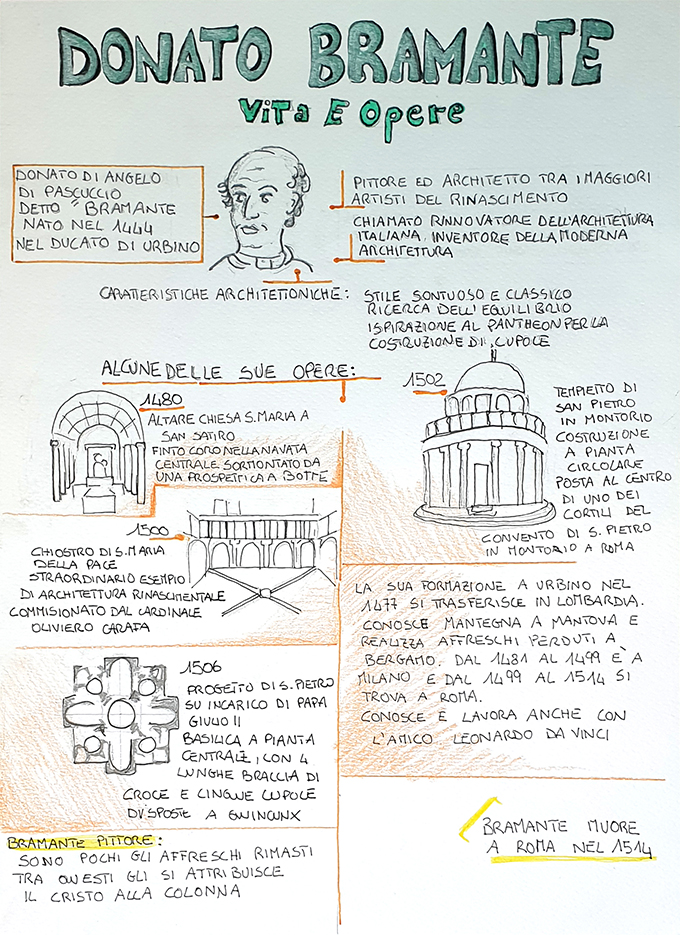 DONATO BRAMANTE
ViTa E Opere
DONATO DI ANGELO
DI PASCUCCIO
DETTO "BRAMANTE
NATO NEL 1444
NEL DUCATO DI URBINO
PITTORE ED ARCHITETTO TRA I MAGGIORI
ARTISTI DEL RINASCIMENTO
CHIAMATO RINNOVATORE DELL'ARCHITETTURA
ITALIANA, INVENTORE DELLA MODERNA
ARCHITETTURA
CARATTERISTICHE ARCHITETTONICHE:
STILE SONTUOSO E CLASSICO
RICERCA DELL'EQUILIBRIO
ISPIRAZIONE AL PANTHEON PER LA
COSTRUZIONE DI CUPOLE
ALCUNE DELLE SUE OPERE:
1480
ALTARE CHIESA S. MARIA A
SAN SATIRO
FINTO CORO NELLA NAVATA
CENTRALE SORMONTATO DA
UNA PROSPETTICA A BOTTE
1502
TEMPIETTO DI
SAN PIETRO
IN MONTORIO
COSTRUZIONE
A PIANTA
CIRCOLARE
POSTA AL CENTRO
DI UNO DEI
CORTILI DEL
CONVENTO DI S. PIETRO
IN MONTORIO A ROMA
1500
CHIOSTRO DI S. MARIA
DELLA PACE
STRAORDINARIO ESEMPIO
DI ARCHITETTURA RINASCIMENTALE
COMMISIONATO DAL CARDINALE
OLIVIERO CARAFA
LA SUA FORMAZIONE A URBINO NEL
1477 SI TRASFERISCE IN LOMBARDIA.
CONOSCE MANTEGNA A MANTOVA E
REALIZZA AFFRESCHI PERDUTI A
BERGAMO. DAL 1481 AL 1499 E' A
MILANO E DAL 1499 AL 1514 SI
TROVA A ROMA.
CONOSCE E LAVORA ANCHE CON
L'AMICO LEONARDO DA VINCI
1506
PROGETTO DI S. PIETRO
SU INCARICO DI PAPA
GIULIO II
BASILICA A PIANTA
CENTRALE, CON 4
LUNGHE BRACCIA DI
CROCE E CINQUE CUPOLE
DISPOSTE A QUINCUNX
BRAMANTE PITTORE:
SONO POCHI GLI AFFRESCHI RIMASTI
TRA QUESTI GLI SI ATTRIBUISCE
IL CRISTO ALLA COLONNA
BRAMANTE MUORE
A ROMA NEL 1514